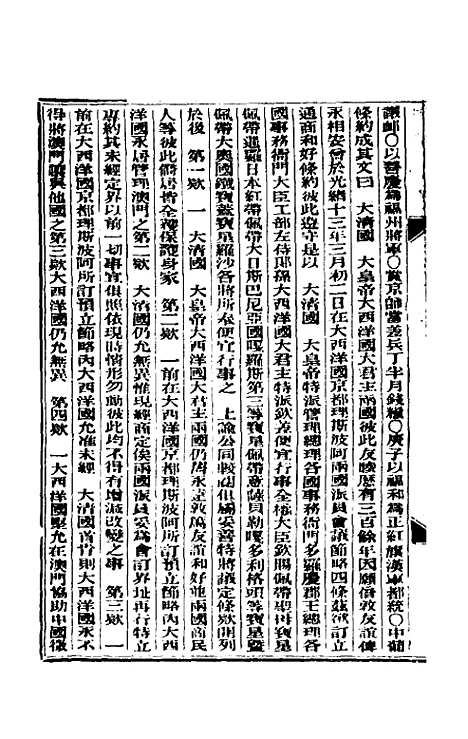 議郵〇以善慶爲福州將軍〇賞京師當差兵丁半月錢糧〇庚子以福和爲正紅旗漢軍都統〇中葡
條約成其文曰　大清國　大皇帝大西洋國大君主兩國彼此友睦歷有三百餘年因願倍敦友誼俾
永相安會於光緒十三年三月初二日在大西洋國京都理斯波阿兩國派員會議節略四條茲欲訂立
通商和好條約彼此遵守是以　大清國　大皇帝特派管理總理各國事務衙門多羅慶郡王總理各
國事務衙門大臣工部左侍郎孫大西洋國大君主特派欽差便宜行事全權大臣欽賜佩帶聖母寶星
佩帶暹羅日本紅帶佩帶大日斯巴尼亞國嘎羅斯第三等寶星佩帶意薩貝勒嘎多利格頭等寶星暨
佩帶大奧國鐵寶蓋寶星羅沙各將所奉便宜行事之　上諭公同較閱俱屬妥善特將議定條欵開列
於後　第一欵　一　大清國　大皇帝大西洋國大君主兩國仍舊永遠敦篤友誼和好並兩國商民
人等彼此僑居皆全獲保護身家　第二欵　一前在大西洋國京都理斯波阿所訂預立節略內大西
洋國永居管理澳門之第二欵　大清國仍允無異惟現經商定俟兩國派員妥爲會訂界址再行特立
專約其未經定界以前一切事宜俱照依現時情形勿動彼此均不得有增減改變之事　第三欵　一
前在大西洋國京都理斯波阿所訂預立節略內大西洋國允准未經　大清國首肯則大西洋國永不
得將澳門讓與他國之第三欵大西洋國仍允無異　第四欵　一大西洋國堅允在澳門協助中國徵